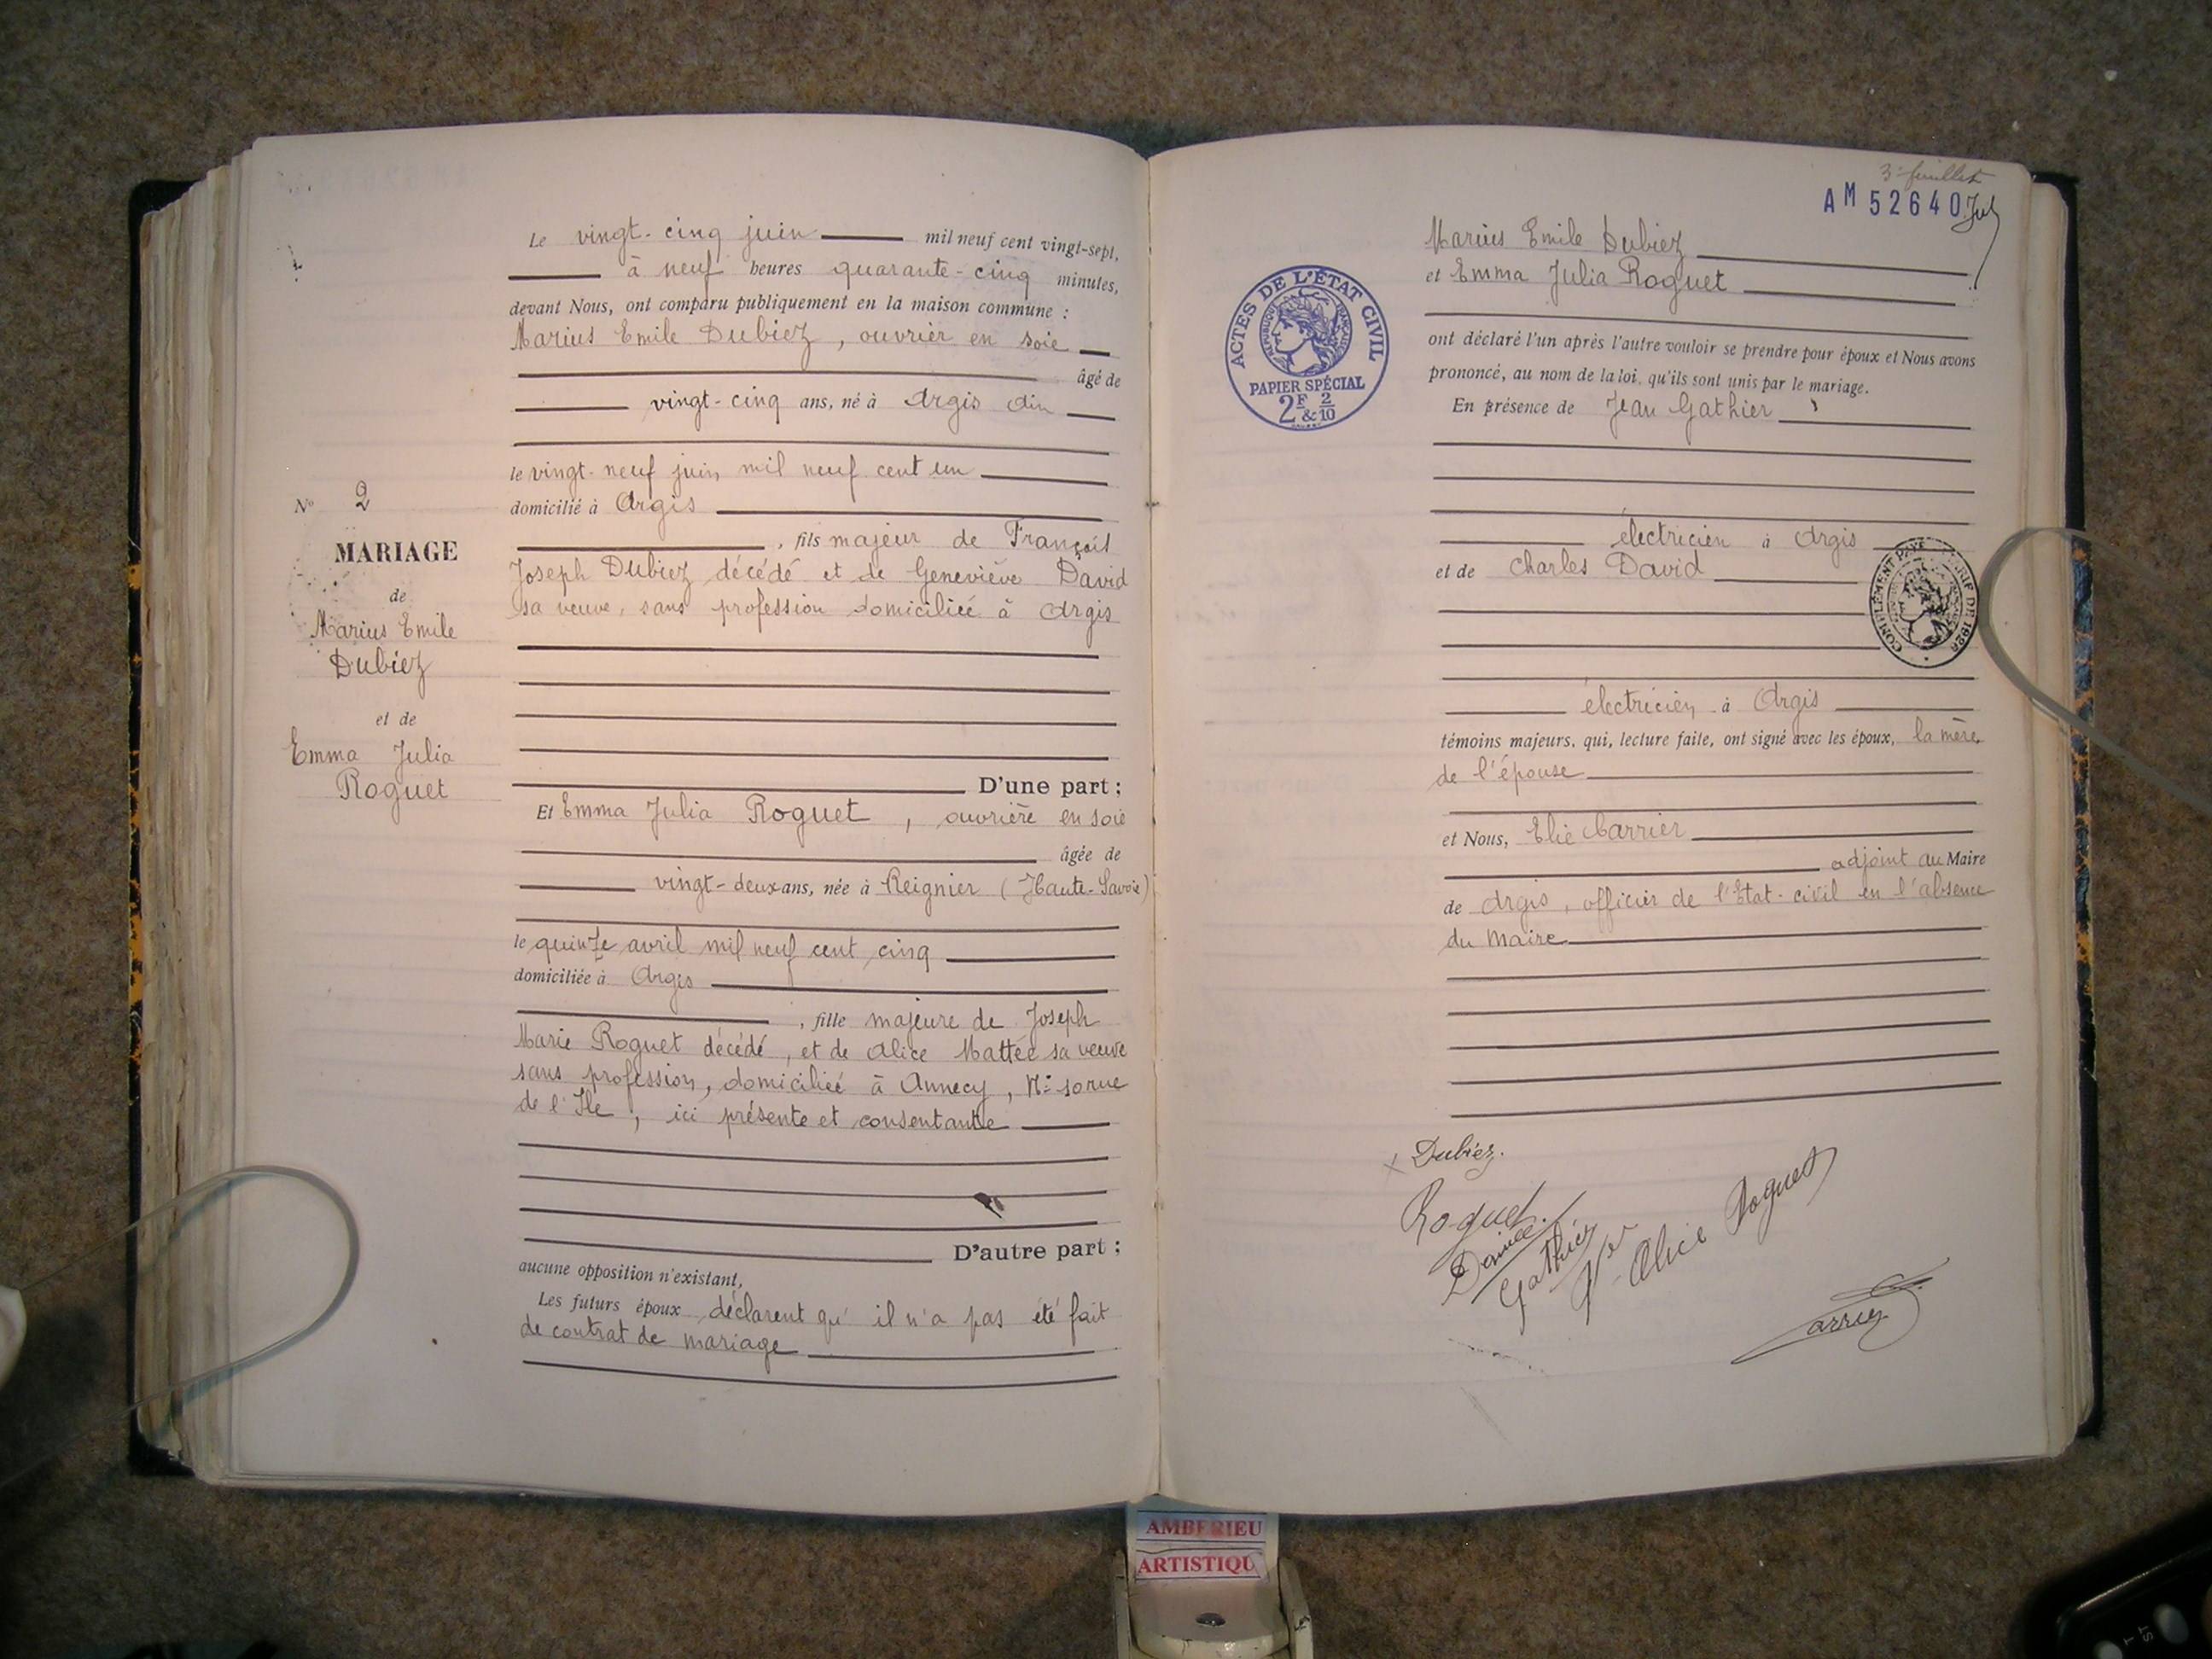 Le vingt-cinq juin mil neuf cent vingt-sept,
à neuf heures quarante-cinq minutes,
devant Nous, ont comparu publiquement en la maison commune :
Marius Emile Dubiez, ouvrier en soie
âgé de
vingt-cinq ans, né à Argis Ain
le vingt-neuf juin mil neuf cent un
domicilié à Argis
, fils majeur de François
Joseph Dubiez décédé et de Geneviève David
sa veuve, sans profession domiciliée à Argis
N° 2
MARIAGE
de
Marius Emile
Dubiez
et de
Emma Julia
Roguet
D'une part ;
Et Emma Julia Roguet, ouvrière en soie
âgée de
vingt-deux ans, née à Reignier (Haute-Savoie)
le quinze avril mil neuf cent cinq
domiciliée à Argis
, fille majeure de Joseph
Marie Roguet décédé, et de Alice Mattée sa veuve
sans profession, domiciliée à Annecy, N° 10 rue
de l'Ile, ici présente et consentante
D'autre part ;
aucune opposition n'existant,
Les futurs époux déclarent qu'il n'a pas été fait
de contrat de mariage
3e feuillet
AM 52640
Marius Emile Dubiez
et Emma Julia Roguet
ACTES DE L'ÉTAT CIVIL
RÉPUBLIQUE FRANÇAISE
PAPIER SPÉCIAL
2F & 2/10
ont déclaré l'un après l'autre vouloir se prendre pour époux et Nous avons
prononcé, au nom de la loi, qu'ils sont unis par le mariage.
En présence de Jean Gathier
électricien à Argis
et de Charles David
COMPLÉMENT PAYÉ TARIF DE 1926
électricien à Argis
témoins majeurs, qui, lecture faite, ont signé avec les époux, la mère
de l'épouse
et Nous, Elie Carrier
adjoint au Maire
de Argis, officier de l'Etat-civil en l'absence
du Maire
Dubiez.
Roguet.
Gathier
Alice Roguet
AMBERIEU
ARTISTIQU